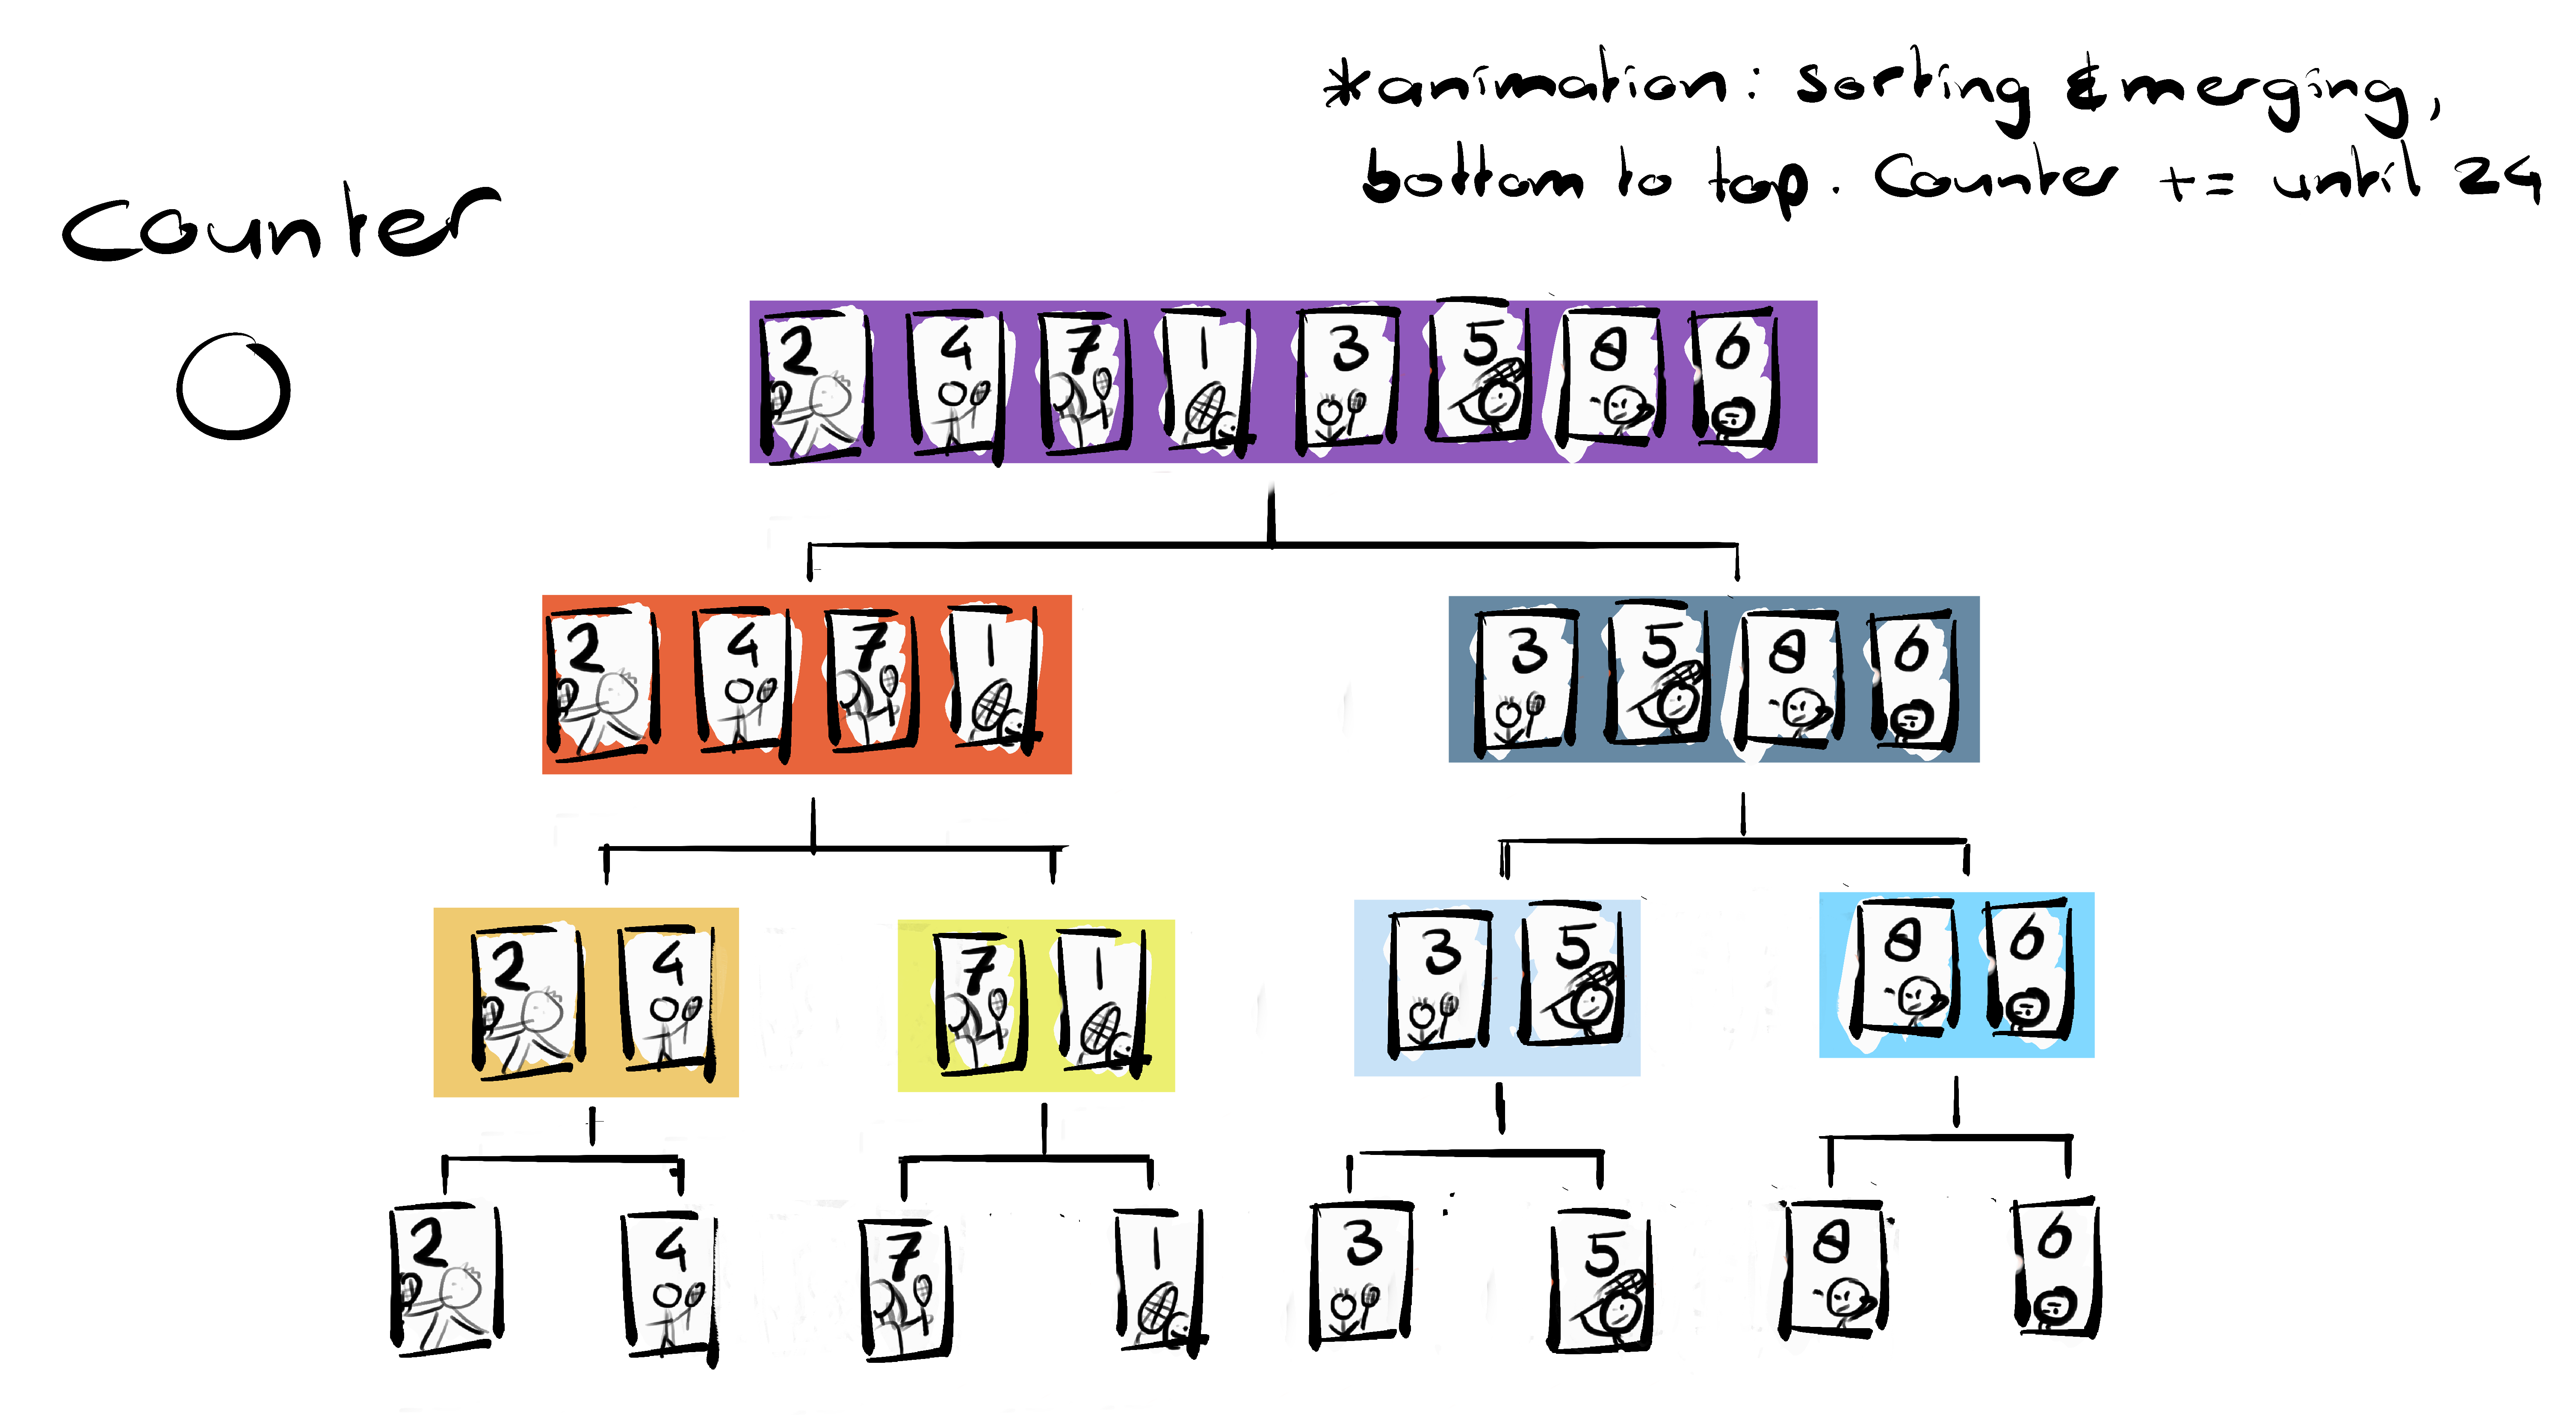 *animation: sorting & merging,
bottom to top. Counter += until 24
Counter
2 4 7 1 3 5 8 6
2 4 7 1
3 5 8 6
2 4
7 1
3 5
8 6
2 4 7 1 3 5 8 6